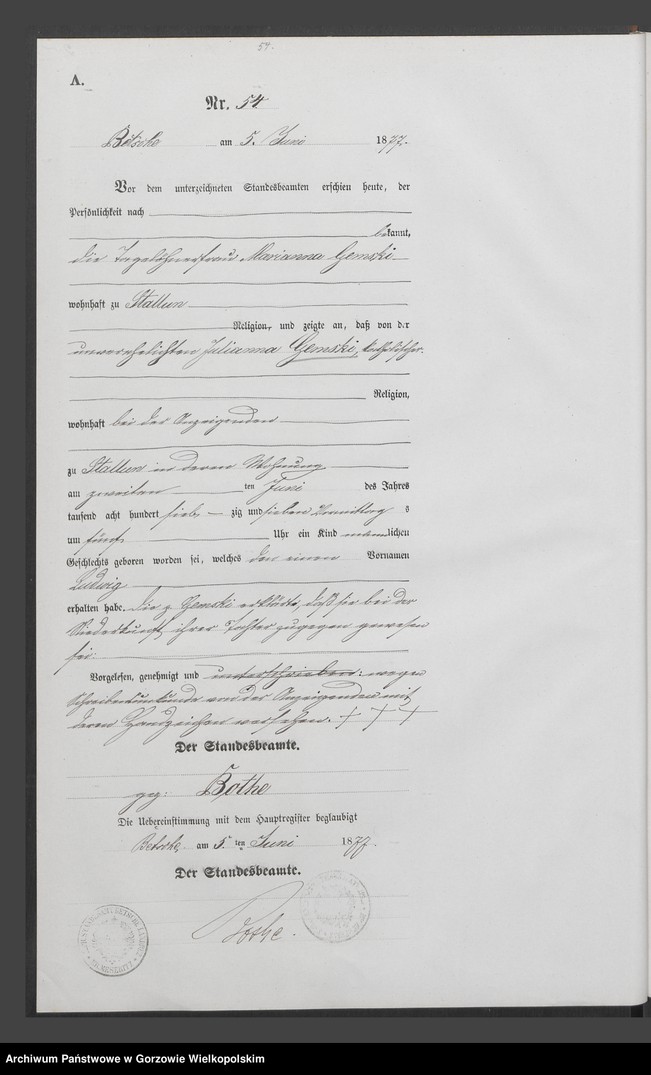 54.
A.
Nr. 54
Betsche am 5. Juni 1877.
Vor dem unterzeichneten Standesbeamten erschien heute, der
Persönlichkeit nach
bekannt,
die Tagelöhnerfrau Marianna Gemski
wohnhaft zu Stallun
Religion, und zeigte an, daß von der
unverehelichten Julianna Gemski, katholischer
Religion,
wohnhaft bei der Anzeigenden
zu Stallun in deren Wohnung
am zweiten ten Juni des Jahres
tausend acht hundert sieb zig und sieben Vormittag s
um fünf Uhr ein Kind männlichen
Geschlechts geboren worden sei, welches den einen Vornamen
Ludwig
erhalten habe. Die p. Gemski erklärte, daß sie bei der
Niederkunft ihrer Tochter zugegen gewesen
sei.
Vorgelesen, genehmigt und unterschrieben: wegen
Schreibensunkunde von der Anzeigenden mit
deren Handzeichen versehen. + + +
Der Standesbeamte.
gez: Bothe
Die Uebereinstimmung mit dem Hauptregister beglaubigt
Betsche am 5. ten Juni 1877.
Der Standesbeamte.
Bothe.
Archiwum Państwowe w Gorzowie Wielkopolskim